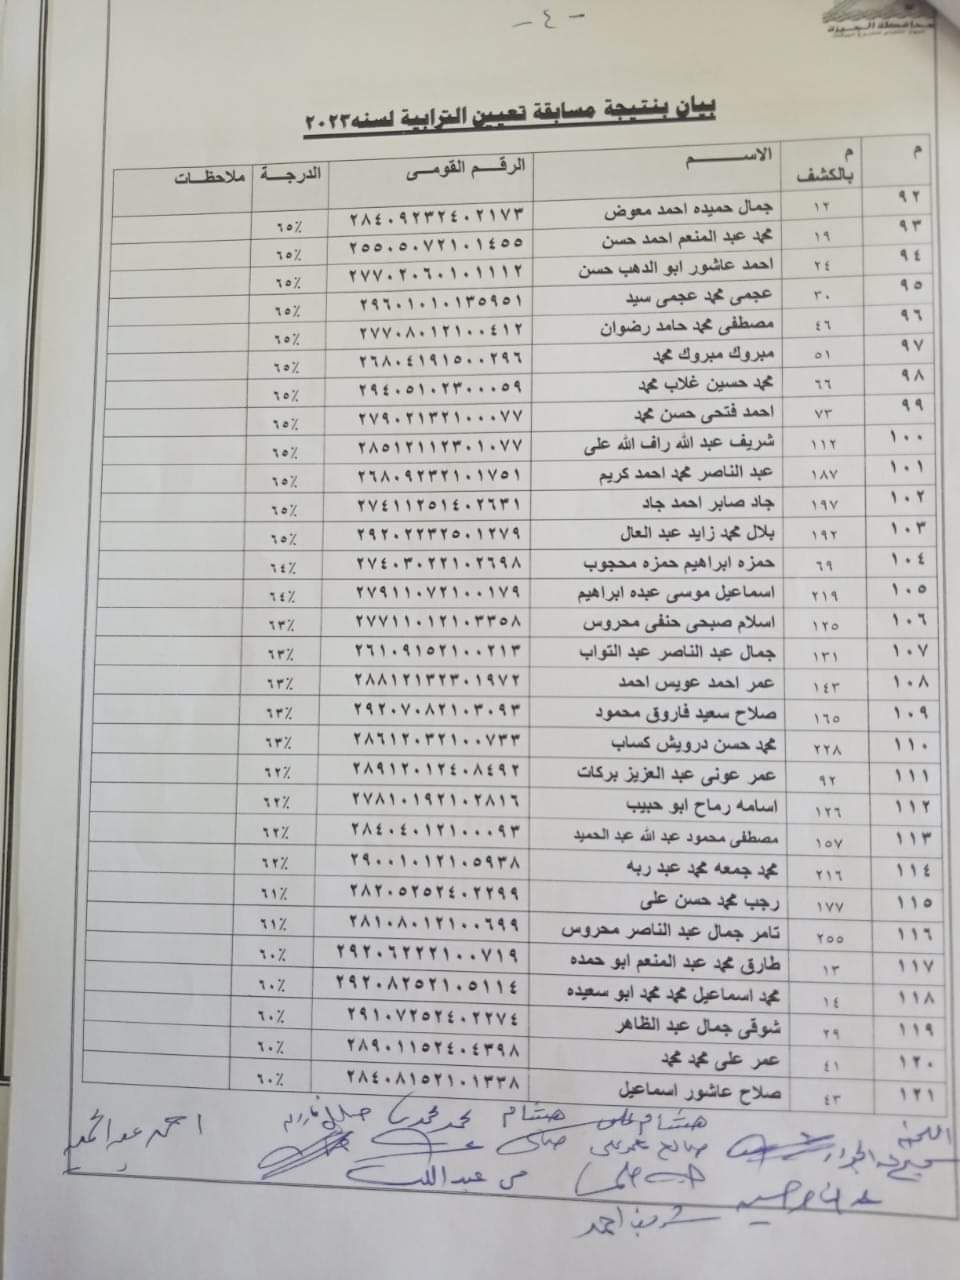 - ٤ -
محافظة الجيزة
بيان بنتيجة مسابقة تعيين الترابية لسنه ٢٠٢٣
م م بالكشف الاســـــم الرقـــم القومـــى الدرجـــة ملاحظـات
٩٢ ١٢ جمال حميده احمد معوض ٢٨٤٠٩٢٣٢٤٠٢١٧٣ ٦٥٪
٩٣ ١٩ محمد عبد المنعم احمد حسن ٢٥٥٠٥٠٧٢١٠١٤٥٥ ٦٥٪
٩٤ ٢٤ احمد عاشور ابو الدهب حسن ٢٧٧٠٢٠٦٠١٠١١١٢ ٦٥٪
٩٥ ٣٠ عجمى محمد عجمى سيد ٢٩٦٠١٠١٠١٣٥٩٥١ ٦٥٪
٩٦ ٤٦ مصطفى محمد حامد رضوان ٢٧٧٠٨٠١٢١٠٠٤١٢ ٦٥٪
٩٧ ٥١ مبروك مبروك محمد ٢٦٨٠٤١٩١٥٠٠٢٩٦ ٦٥٪
٩٨ ٦٦ محمد حسين غلاب محمد ٢٩٤٠٥١٠٢٣٠٠٠٥٩ ٦٥٪
٩٩ ٧٣ احمد فتحى حسن محمد ٢٧٩٠٢١٣٢١٠٠٠٧٧ ٦٥٪
١٠٠ ١١٢ شريف عبد الله راف الله على ٢٨٥١٢١١٢٣٠١٠٧٧ ٦٥٪
١٠١ ١٨٧ عبد الناصر محمد احمد كريم ٢٦٨٠٩٢٣٢١٠١٧٥١ ٦٥٪
١٠٢ ١٩٧ جاد صابر احمد جاد ٢٧٤١١٢٥١٤٠٢٦٣١ ٦٥٪
١٠٣ ١٩٢ بلال محمد زايد عبد العال ٢٩٢٠٢٢٣٢٥٠١٢٧٩ ٦٥٪
١٠٤ ٦٩ حمزه ابراهيم حمزه محجوب ٢٧٤٠٣٠٢٢١٠٢٦٩٨ ٦٤٪
١٠٥ ٢١٩ اسماعيل موسى عبده ابراهيم ٢٧٩١١٠٧٢١٠٠١٧٩ ٦٤٪
١٠٦ ١٢٥ اسلام صبحى حنفى محروس ٢٧٧١١٠١٢١٠٣٣٥٨ ٦٣٪
١٠٧ ١٣١ جمال عبد الناصر عبد التواب ٢٦١٠٩١٥٢١٠٠٢١٣ ٦٣٪
١٠٨ ١٤٣ عمر احمد عويس احمد ٢٨٨١٢١٣٢٣٠١٩٧٢ ٦٣٪
١٠٩ ١٦٥ صلاح سعيد فاروق محمود ٢٩٢٠٧٠٨٢١٠٣٠٩٣ ٦٣٪
١١٠ ٢٢٨ محمد حسن درويش كساب ٢٨٦١٢٠٣٢١٠٠٧٣٣ ٦٣٪
١١١ ٩٢ عمر عونى عبد العزيز بركات ٢٨٩١٢٠١٢٤٠٨٤٩٢ ٦٢٪
١١٢ ١٢٦ اسامه رماح ابو حبيب ٢٧٨١٠١٩٢١٠٢٨١٦ ٦٢٪
١١٣ ١٥٧ مصطفى محمود عبد الله عبد الحميد ٢٨٤٠٤٠١٢١٠٠٠٩٣ ٦٢٪
١١٤ ٢١٦ محمد جمعه محمد عبد ربه ٢٩٠٠١٠١٢١٠٥٩٣٨ ٦٢٪
١١٥ ١٧٧ رجب محمد حسن على ٢٨٢٠٥٢٥٢٤٠٢٢٩٩ ٦١٪
١١٦ ٢٥٥ تامر جمال عبد الناصر محروس ٢٨١٠٨٠١٢١٠٠٦٩٩ ٦١٪
١١٧ ١٣ طارق محمد عبد المنعم ابو حمده ٢٩٢٠٦٢٢٢١٠٠٧١٩ ٦٠٪
١١٨ ١٤ محمد اسماعيل محمد محمد ابو سعيده ٢٩٢٠٨٢٥٢١٠٥١١٤ ٦٠٪
١١٩ ٢٩ شوقى جمال عبد الظاهر ٢٩١٠٧٢٥٢٤٠٢٢٧٤ ٦٠٪
١٢٠ ٤١ عمر على محمد محمد ٢٨٩٠١١٥٢٤٠٤٣٩٨ ٦٠٪
١٢١ ٤٣ صلاح عاشور اسماعيل ٢٨٤٠٨١٥٢١٠١٣٣٨ ٦٠٪
اللجنة
هشام هشام محمد
شريف احمد